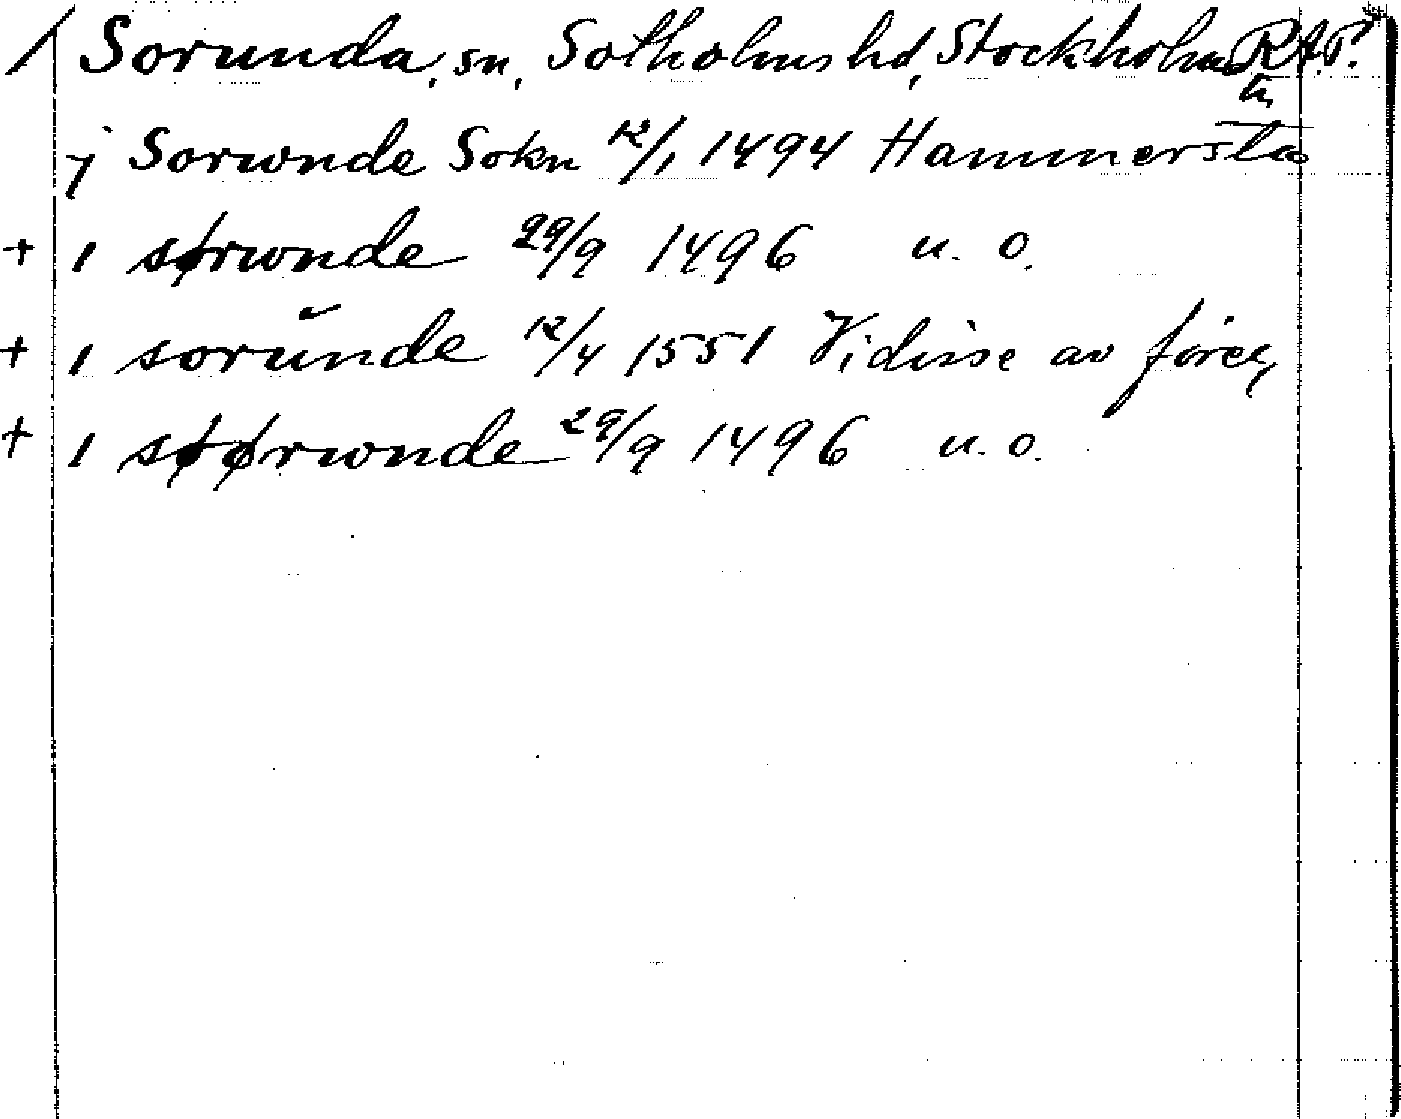 / Sorunda, sn, Sotholms hd, Stockholms län RAP?
j Sorwnde Sokn 12/1 1494 Hammersta
+ i sørwnde 29/9 1496 u. o.
+ i sorŭnde 12/4 1551 Vidisse av föreg,
+ i støørwnde 29/9 1496 u. o.